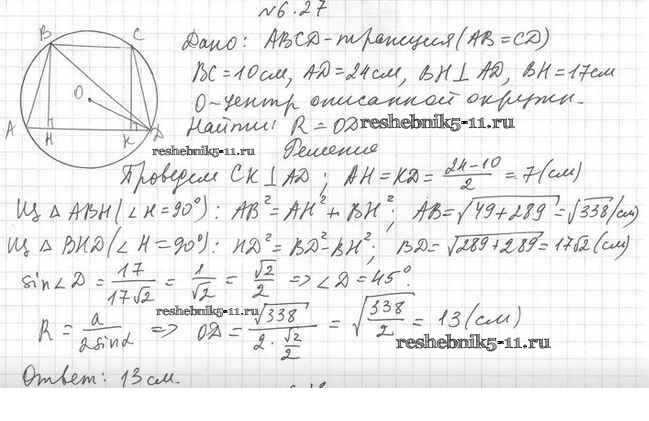 №6.27
B C
Дано: ABCD-трапеция (AB=CD)
BC=10см, AD=24см, BH⊥AD, BH=17см
O
O-центр описанной окружн.
A H K D
Найти: R=OD reshebnik5-11.ru
reshebnik5-11.ru
Решение
Проведем CK⊥AD; AH=KD=\frac{24-10}{2}=7(см)
Из △ABH(∠H=90°): AB²=AH²+BH²; AB=√49+289=√338(см)
Из △BHD(∠H=90°): HD²=BD²-BH²; BD=√289+289=17√2(см)
sin∠D=\frac{17}{17√2}=\frac{1}{√2}=\frac{√2}{2} ⇒ ∠D=45°.
reshebnik5-11.ru
R=\frac{a}{2sinα} ⇒ OD=\frac{√338}{2·\frac{√2}{2}}=√\frac{338}{2}=13(см)
reshebnik5-11.ru
Ответ: 13см.